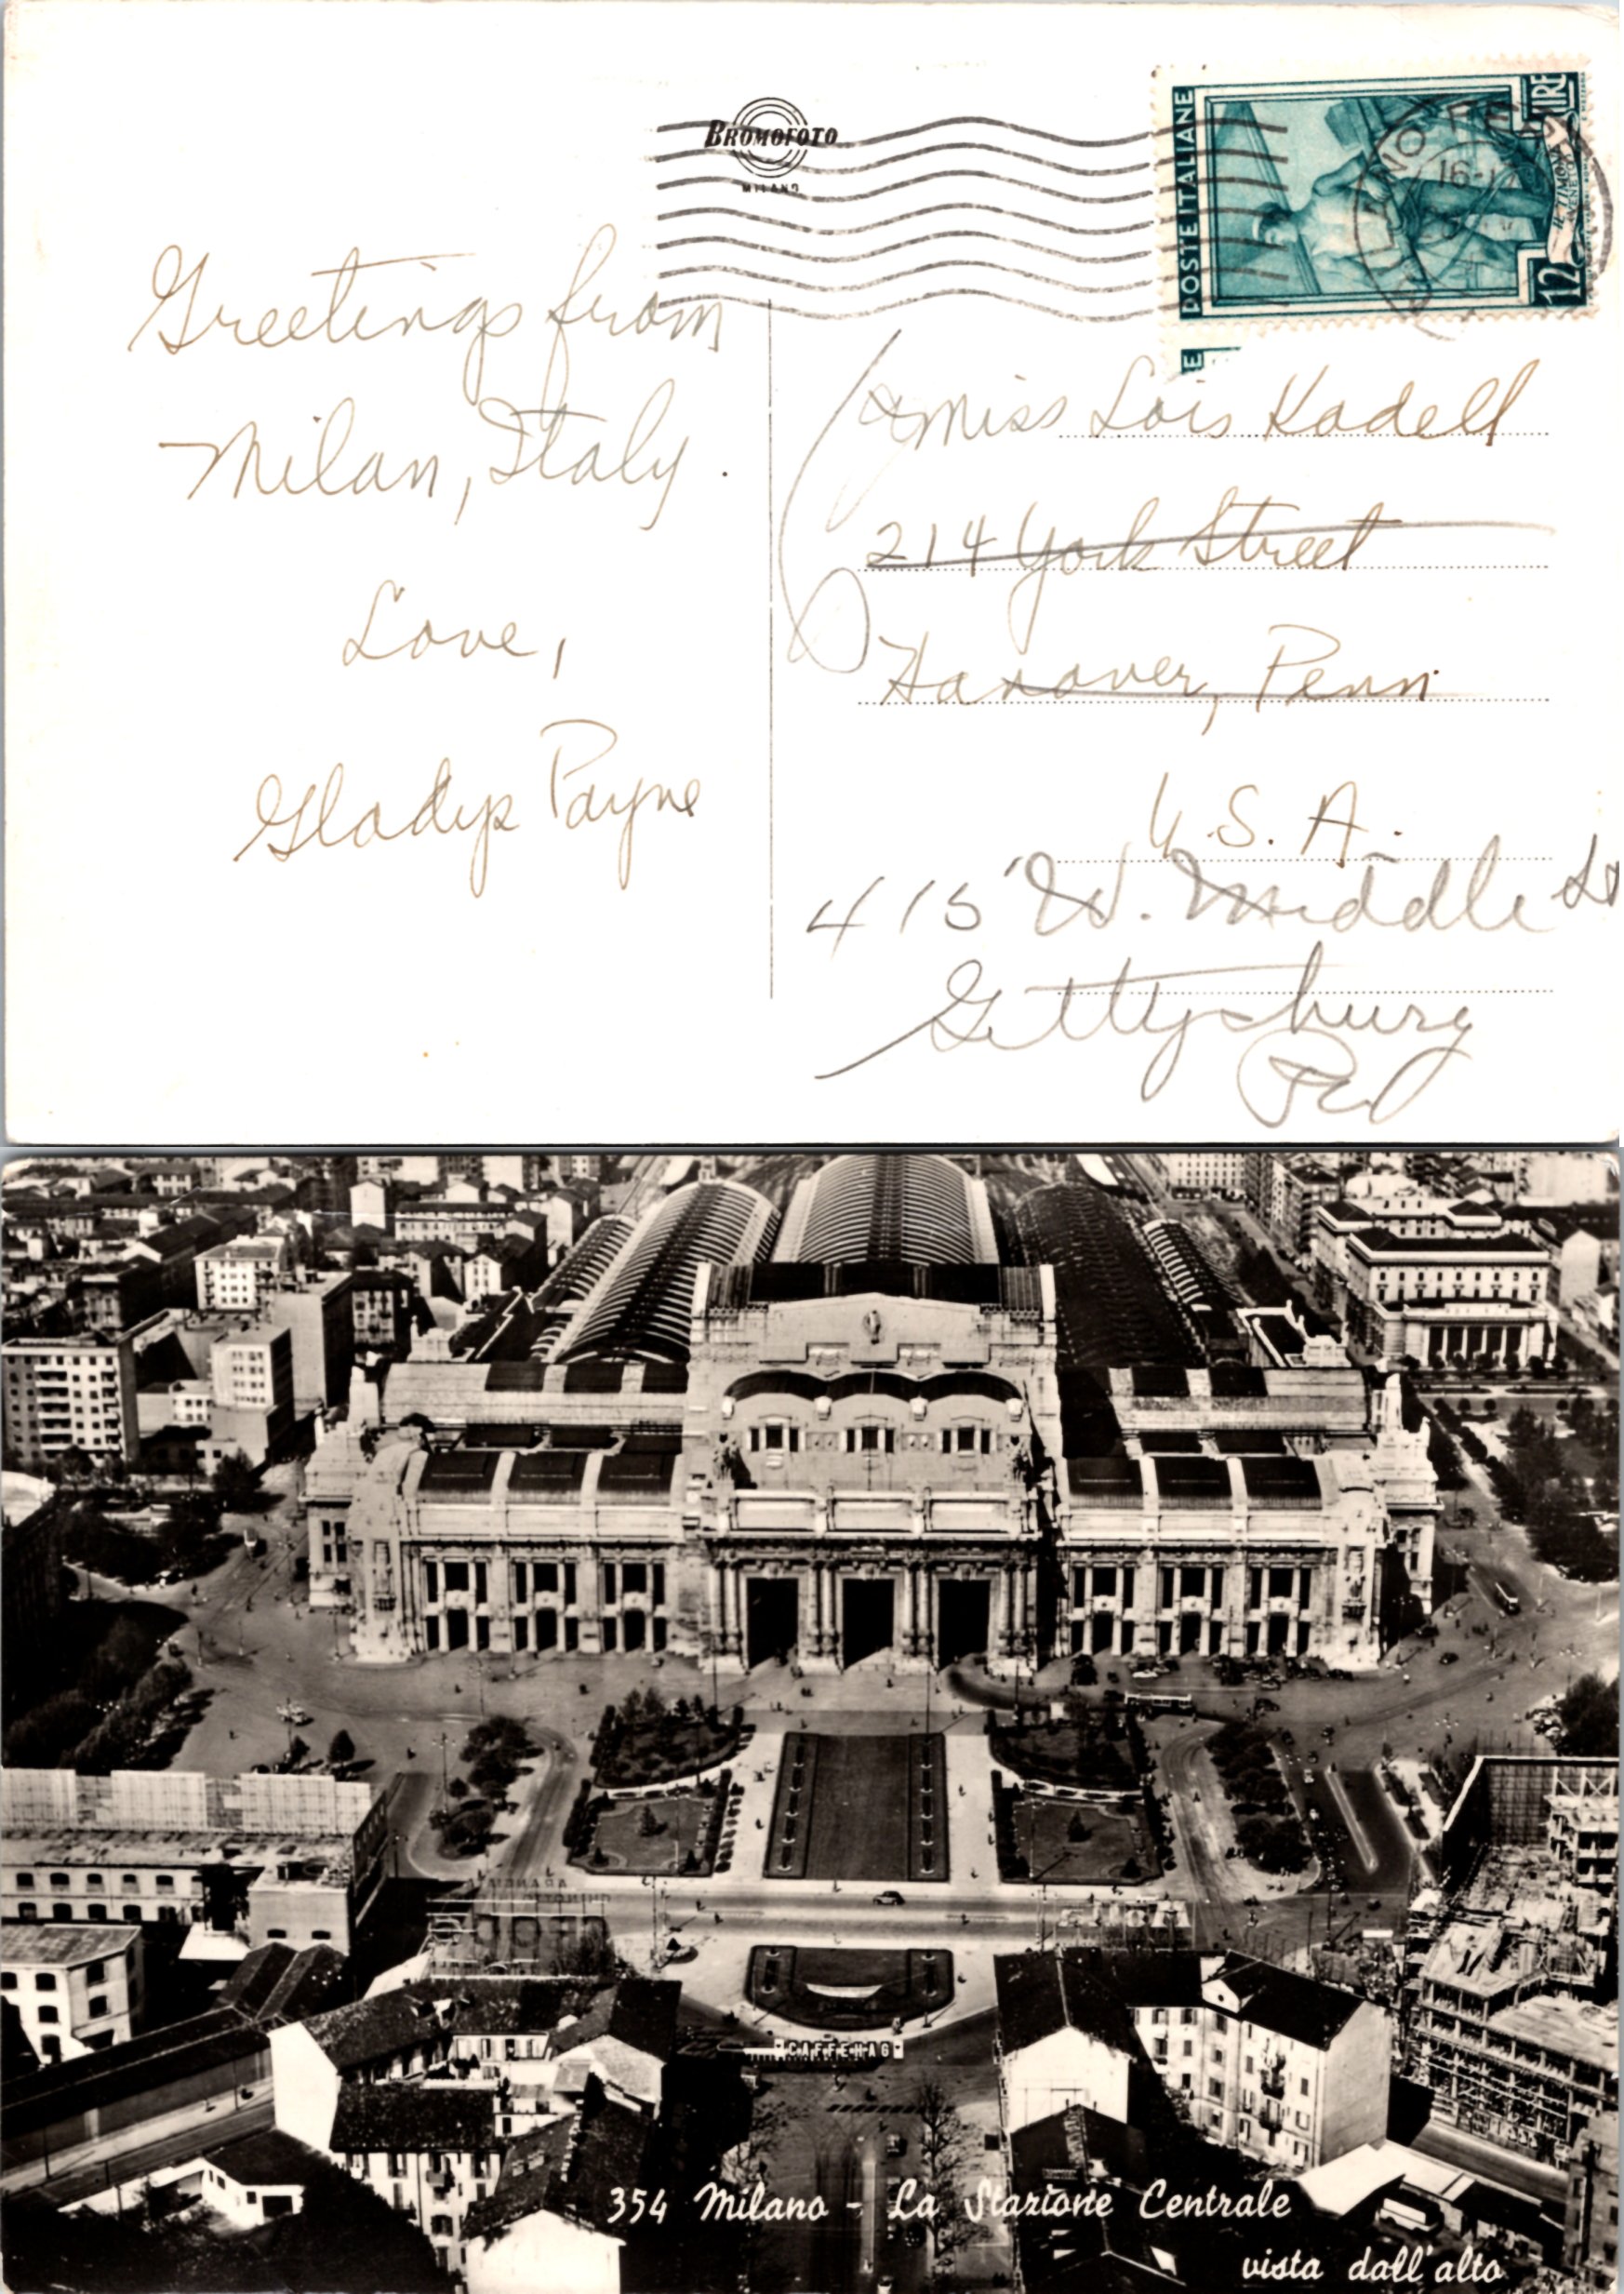 BROMOFOTO
MILANO
POSTE ITALIANE
12 LIRE
IL TIMONE
MILANO
16-1
RE
Greetings from
Milan, Italy.
Love,
Gladys Payne
Miss Lois Kadell
214 York Street
Hanover, Penn.
U.S.A.
415 W. Middle St
Gettysburg
Pa
CAFFE HAG
354 Milano - La Stazione Centrale
vista dall'alto